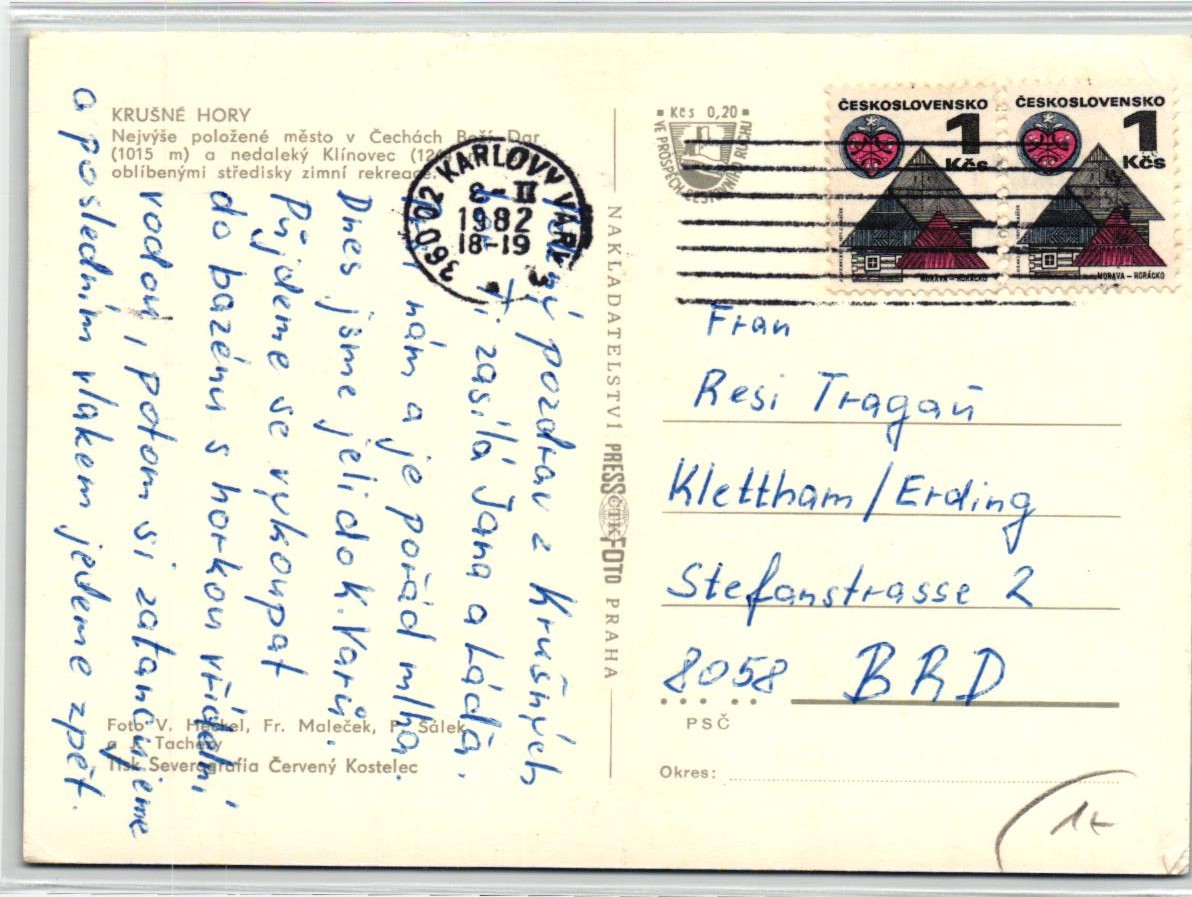 KRUŠNÉ HORY
Nejvýše položené město v Čechách Boží Dar
(1015 m) a nedaleký Klínovec (12
oblíbenými středisky zimní rekreace.
pozdrav z Krušných
Ti zasílá Jana a Láďa.
nám a je pořád mlha.
Dnes jsme jeli do K. Varů.
Půjdeme se vykoupat
do bazénu s horkou vřídelní
vodou, potom si zatancujeme
a posledním vlakem jedeme zpět.
Foto V. Heckel, Fr. Maleček, P. Šálek
a J. Tachezy
Tisk Severografia Červený Kostelec
360 02 KARLOVY VARY 3
8-II
1982
18-19
NAKLADATELSTVÍ PRESSFOTO PRAHA
ČTK
Kčs 0,20
VE PROSPĚCH CESTOVNÍHO RUCHU
ČESKOSLOVENSKO
1
Kčs
MORAVA – HORÁCKO
ČESKOSLOVENSKO
1
Kčs
MORAVA – HORÁCKO
Frau
Resi Tragaŭ
Klettham/Erding
Stefanstrasse 2
8058 BRD
PSČ
Okres: